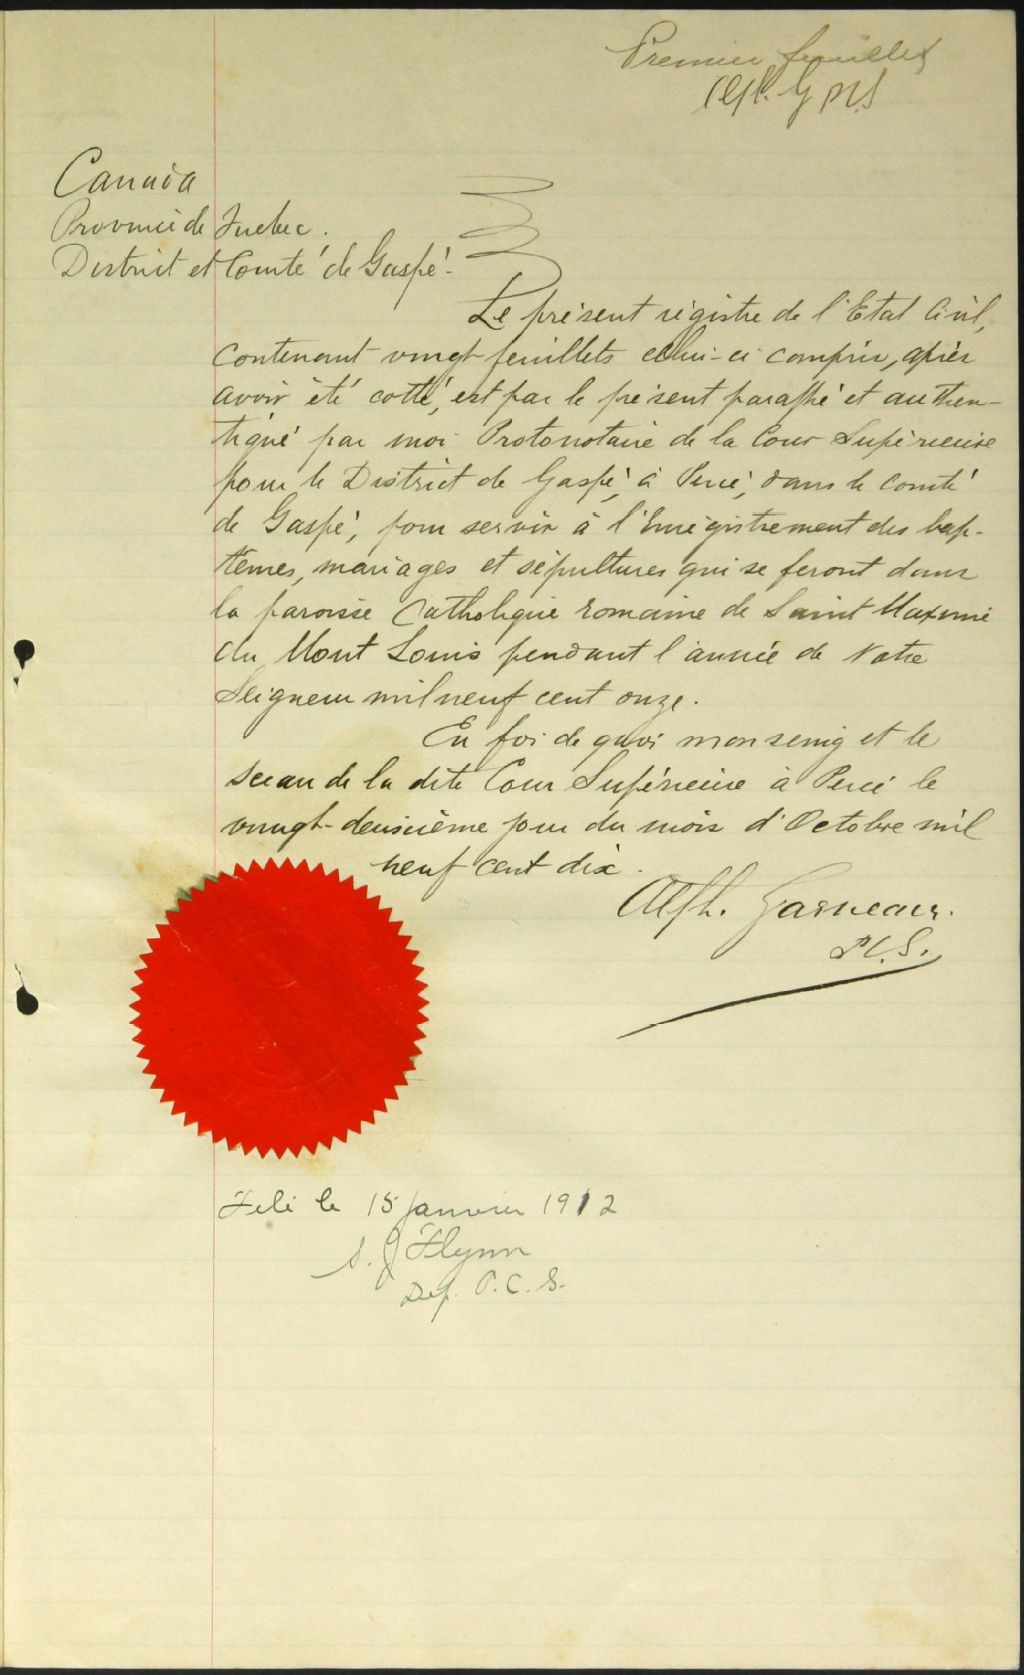 Premier feuillet
Alph. G PCS
Canada
Province de Quebec.
District et Comté de Gaspé.
Le présent régistre de l'Etat Civil,
contenant vingt feuillets celui-ci compris, après
avoir été cotté, est par le présent paraphé et authen-
tiqué par moi Protonotaire de la Cour Supérieure
pour le District de Gaspé, à Percé, dans le comté
de Gaspé, pour servir à l'Enrégistrement des bap-
têmes, mariages et sépultures qui se feront dans
la paroisse Catholique romaine de Saint Maxime
du Mont Louis pendant l'année de Notre
Seigneur mil neuf cent onze.
En foi de quoi mon seing et le
sceau de la dite Cour Supérieure à Percé le
vingt-deuxième jour du mois d'Octobre mil
neuf cent dix.
Alph. Garneau.
P.C.S.
Filé le 15 Janvier 1912
S. J Flynn
Dep. P.C.S.